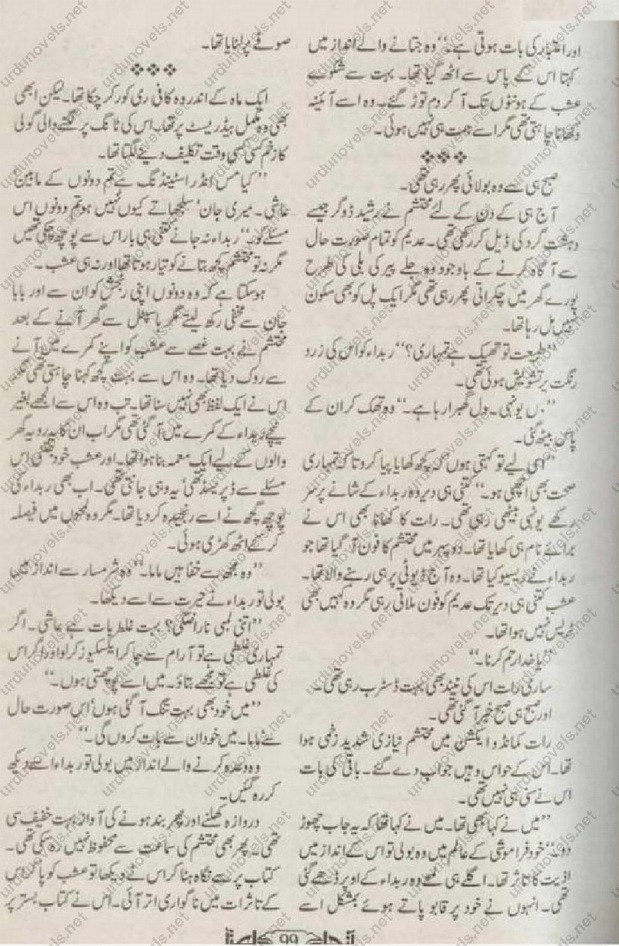 اور اعتبار کی بات ہوتی ہے۔“ وہ جتانے والے انداز میں
کہتا اس کے پاس سے اٹھ گیا تھا۔ بہت سے شکوے
عشب کے ہونٹوں تک آ کر دم توڑ گئے۔ وہ اسے آئینہ
دکھانا چاہتی تھی مگر اسے ہمت ہی نہیں ہوئی۔
صبح ہی سے وہ بولائی پھر رہی تھی۔
آج ہی کے دن کے لئے محتشم نے رشید ڈوگر جیسے
دہشت گرد کی ڈیل کر رکھی تھی۔ عدیم کو تمام صورت حال
سے آگاہ کرنے کے باوجود وہ جلے پیر کی بلی کی طرح
پورے گھر میں چکراتی پھر رہی تھی مگر ایک پل کو بھی سکون
نہیں مل رہا تھا۔
”طبیعت تو ٹھیک ہے تمہاری؟“ ربداء کو اس کی زرد
رنگت پر تشویش ہوئی تھی۔
یونہی۔ دل گھبرا رہا ہے۔“ وہ تھک کر ان کے
پاس بیٹھ گئی۔
”اسی لیے تو کہتی ہوں کہ کچھ کھایا پیا کرو تا کہ تمہاری
صحت بھی اچھی ہو۔“ کتنی ہی دیر وہ ربداء کے شانے پر سر
رکھے یونہی بیٹھی رہی تھی۔ رات کا کھانا بھی اس نے
برائے نام ہی کھایا تھا۔ دوپہر میں محتشم کا فون آ گیا تھا جو
ربداء نے ریسیو کیا تھا۔ وہ آج ڈیوٹی پر ہی رہنے والا تھا۔
عشب کتنی ہی دیر تک عدیم کو فون ملاتی رہی مگر وہ کہیں بھی
ٹریس نہیں ہوا تھا۔
”یا خدا رحم کرنا۔“
ساری رات اس کی نیند بھی بہت ڈسٹرب رہی تھی۔
اور صبح ہی صبح خبر آ گئی تھی۔
رات کمانڈو ایکشن میں محتشم نیازی شدید زخمی ہوا
تھا۔ اس کے حواس وہیں جواب دے گئے۔ باقی کی بات
اس نے سنی ہی نہیں تھی۔
”میں نے کہا بھی تھا۔ میں نے کہا تھا کہ یہ جاب چھوڑ
دو۔“ خود فراموشی کے عالم میں وہ بولی تو اس کے انداز میں
اذیت کا تاثر تھا۔ اگلے ہی لمحے وہ ربداء کے اوپر ڈھے گئی
تھی۔ انہوں نے خود پر قابو پاتے ہوئے بمشکل اسے
صوفے پر لٹایا تھا۔
ایک ماہ کے اندر وہ کافی ری کور کر چکا تھا۔ لیکن ابھی
بھی وہ مکمل بیڈ ریسٹ پر تھا۔ اس کی ٹانگ پر لگنے والی گولی
کا زخم کسی کسی وقت تکلیف دینے لگتا تھا۔
”کیا مس انڈر اسٹینڈنگ ہے تم دونوں کے مابین
عاشی۔ میری جان‘ سلجھاتے کیوں نہیں ہو تم دونوں اس
مسئلے کو۔“ ربداء نہ جانے کتنی ہی بار اس سے پوچھ چکی تھیں
مگر نہ تو محتشم کچھ بتانے کو تیار ہوتا تھا اور نہ ہی عشب۔
ہو سکتا ہے کہ وہ دونوں اپنی رنجش کو ان سے اور بابا
جان سے مخفی رکھ لیتے مگر ہاسپٹل سے گھر آنے کے بعد
محتشم نے بہت غصے سے عشب کو اپنے کمرے میں آنے
سے روک دیا تھا۔ وہ اس سے بہت کچھ کہنا چاہتی تھی مگر
اس نے ایک لفظ بھی نہیں سنا تھا۔ تب وہ اس سے الجھے بغیر
نیچے ربداء کے کمرے میں آ گئی تھی مگر اب ان کا یہ رویہ گھر
والوں کے لیے ایک معمہ بنا ہوا تھا۔ اور عشب خود کتنی اس
مسئلے سے ڈپریسڈ تھی‘ یہ وہی جانتی تھی۔ اب بھی ربداء کی
پوچھ گچھ نے اسے رنجیدہ کر دیا تھا۔ مگر وہ لمحوں میں فیصلہ
کر کے اٹھ کھڑی ہوئی۔
”وہ مجھ سے خفا ہیں ماما۔“ وہ شرمسار سے انداز میں
بولی تو ربداء نے حیرت سے اسے دیکھا۔
”اتنی لمبی ناراضگی؟ بہت غلط بات ہے عاشی۔ اگر
تمہاری غلطی ہے تو آرام سے جا کر ایکسکیوز کر لو اور اگر اس
کی غلطی ہے تو مجھے بتاؤ۔ میں اسے پوچھتی ہوں۔“
”میں خود بھی بہت تنگ آ گئی ہوں‘ اس صورت حال
سے ماما۔ میں خود ان سے بات کروں گی۔“
وہ وعدہ کرنے والے انداز میں بولی تو ربداء اسے دیکھ
کر رہ گئیں۔
دروازہ کھلنے اور پھر بند ہونے کی آواز بہت خفیف سی
تھی۔ پھر بھی محتشم کی سماعت سے محفوظ نہیں رہ سکی تھی۔
کتاب پر سے نگاہ ہٹا کر اس نے دیکھا تو عشب کو پا کر اس
کے تاثرات میں ناگواری اتر آئی۔ اس نے کتاب بستر پر
99
urdunovels.net